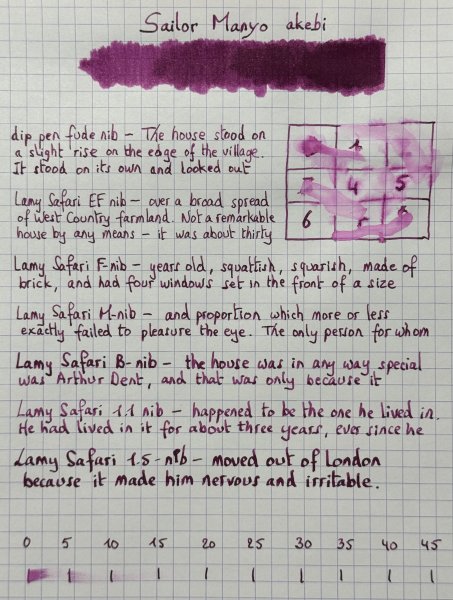 Sailor Manyo akebi
dip pen fude nib – The house stood on
a slight rise on the edge of the village.
It stood on its own and looked out
Lamy Safari EF nib – over a broad spread
of West Country farmland. Not a remarkable
house by any means – it was about thirty
1
4 5
6
Lamy Safari F-nib – years old, squattish, squarish, made of
brick, and had four windows set in the front of a size
Lamy Safari M-nib – and proportion which more or less
exactly failed to pleasure the eye. The only person for whom
Lamy Safari B-nib – the house was in any way special
was Arthur Dent, and that was only because it
Lamy Safari 1.1 nib – happened to be the one he lived in.
He had lived in it for about three years, ever since he
Lamy Safari 1.5-nib – moved out of London
because it made him nervous and irritable.
0 5 10 15 20 25 30 35 40 45